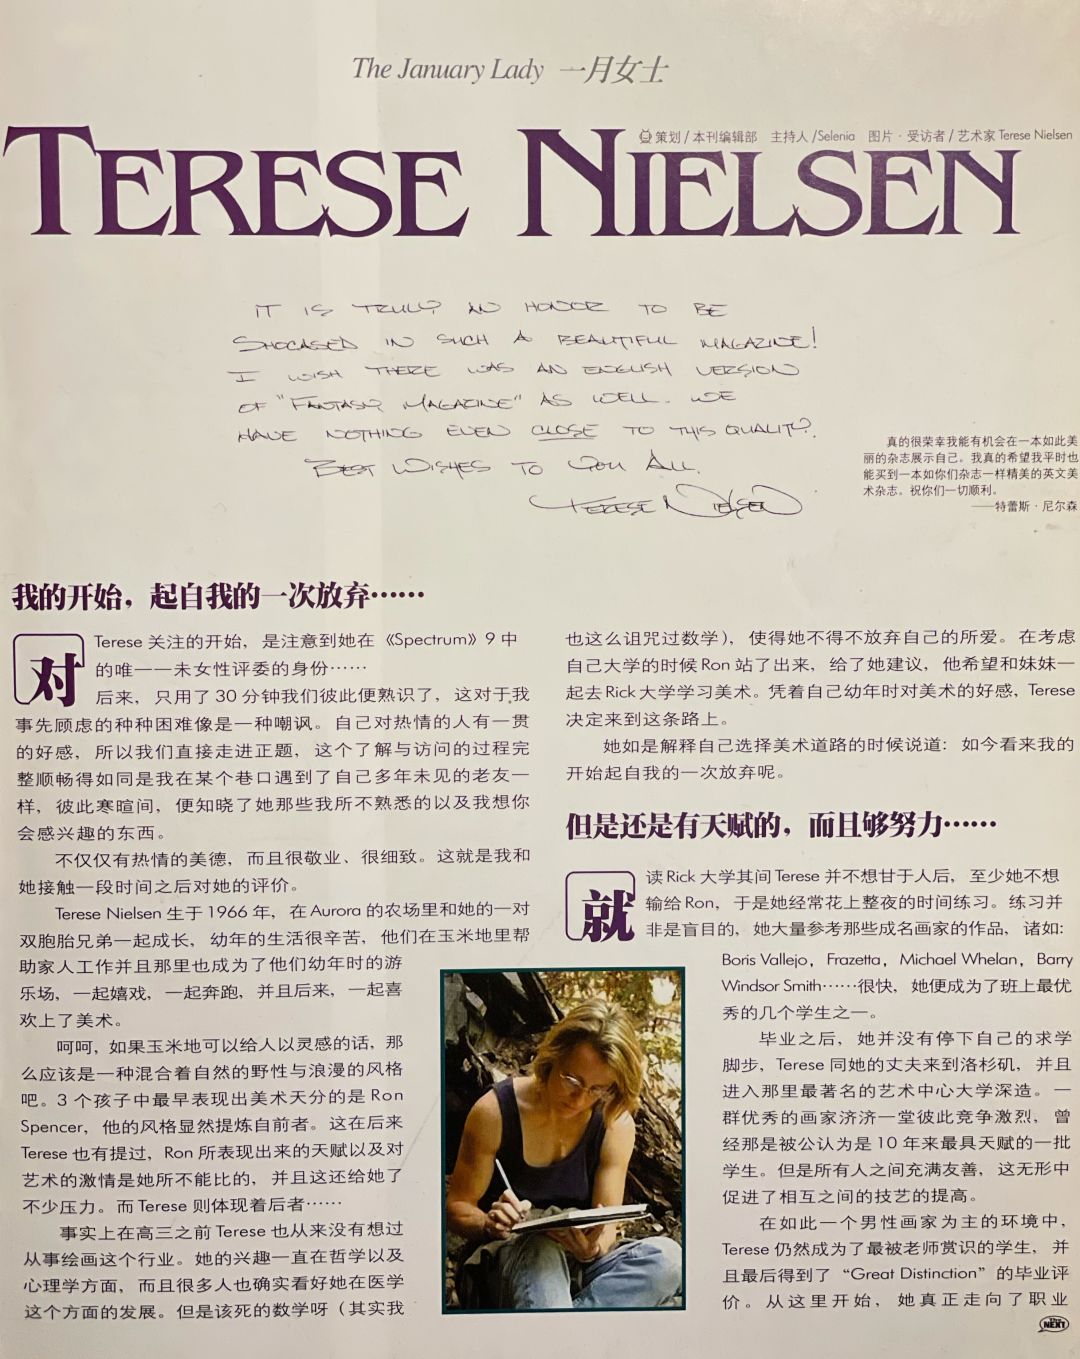 The January Lady 一月女士
TERESE NIELSEN
策划 / 本刊编辑部 主持人 /Selenia 图片·受访者 / 艺术家 Terese Nielsen
IT IS TRULY AN HONOR TO BE
SHOCASED IN SUCH A BEAUTIFUL MAGAZINE!
I WISH THERE WAS AN ENGLISH VERSION
OF "FANTASY MAGAZINE" AS WELL. WE
HAVE NOTHING EVEN CLOSE TO THIS QUALITY.
BEST WISHES TO YOU ALL.
TERESE NIELSEN
真的很荣幸我能有机会在一本如此美
丽的杂志展示自己。我真的希望我平时也
能买到一本如你们杂志一样精美的英文美
术杂志。祝你们一切顺利。
——特蕾斯·尼尔森
我的开始，起自我的一次放弃……
对 Terese 关注的开始，是注意到她在《Spectrum》9 中
的唯一一未女性评委的身份……
后来，只用了 30 分钟我们彼此便熟识了，这对于我
事先顾虑的种种困难像是一种嘲讽。自己对热情的人有一贯
的好感，所以我们直接走进正题，这个了解与访问的过程完
整顺畅得如同是我在某个巷口遇到了自己多年未见的老友一
样，彼此寒暄间，便知晓了她那些我所不熟悉的以及我想你
会感兴趣的东西。
不仅仅有热情的美德，而且很敬业、很细致。这就是我和
她接触一段时间之后对她的评价。
Terese Nielsen 生于 1966 年，在 Aurora 的农场里和她的一对
双胞胎兄弟一起成长，幼年的生活很辛苦，他们在玉米地里帮
助家人工作并且那里也成为了他们幼年时的游
乐场，一起嬉戏，一起奔跑，并且后来，一起喜
欢上了美术。
呵呵，如果玉米地可以给人以灵感的话，那
么应该是一种混合着自然的野性与浪漫的风格
吧。3 个孩子中最早表现出美术天分的是 Ron
Spencer，他的风格显然提炼自前者。这在后来
Terese 也有提过，Ron 所表现出来的天赋以及对
艺术的激情是她所不能比的，并且这还给她了
不少压力。而 Terese 则体现着后者……
事实上在高三之前 Terese 也从来没有想过
从事绘画这个行业。她的兴趣一直在哲学以及
心理学方面，而且很多人也确实看好她在医学
这个方面的发展。但是该死的数学呀（其实我
也这么诅咒过数学），使得她不得不放弃自己的所爱。在考虑
自己大学的时候 Ron 站了出来，给了她建议，他希望和妹妹一
起去 Rick 大学学习美术。凭着自己幼年时对美术的好感，Terese
决定来到这条路上。
她如是解释自己选择美术道路的时候说道：如今看来我的
开始起自我的一次放弃呢。
但是还是有天赋的，而且够努力……
就读 Rick 大学其间 Terese 并不想甘于人后，至少她不想
输给 Ron，于是她经常花上整夜的时间练习。练习并
非是盲目的，她大量参考那些成名画家的作品，诸如：
Boris Vallejo，Frazetta，Michael Whelan，Barry
Windsor Smith……很快，她便成为了班上最优
秀的几个学生之一。
毕业之后，她并没有停下自己的求学
脚步，Terese 同她的丈夫来到洛杉矶，并且
进入那里最著名的艺术中心大学深造。一
群优秀的画家济济一堂彼此竞争激烈，曾
经那是被公认为是 10 年来最具天赋的一批
学生。但是所有人之间充满友善，这无形中
促进了相互之间的技艺的提高。
在如此一个男性画家为主的环境中，
Terese 仍然成为了最被老师赏识的学生，并
且最后得到了“Great Distinction”的毕业评
价。从这里开始，她真正走向了职业
The NEXT